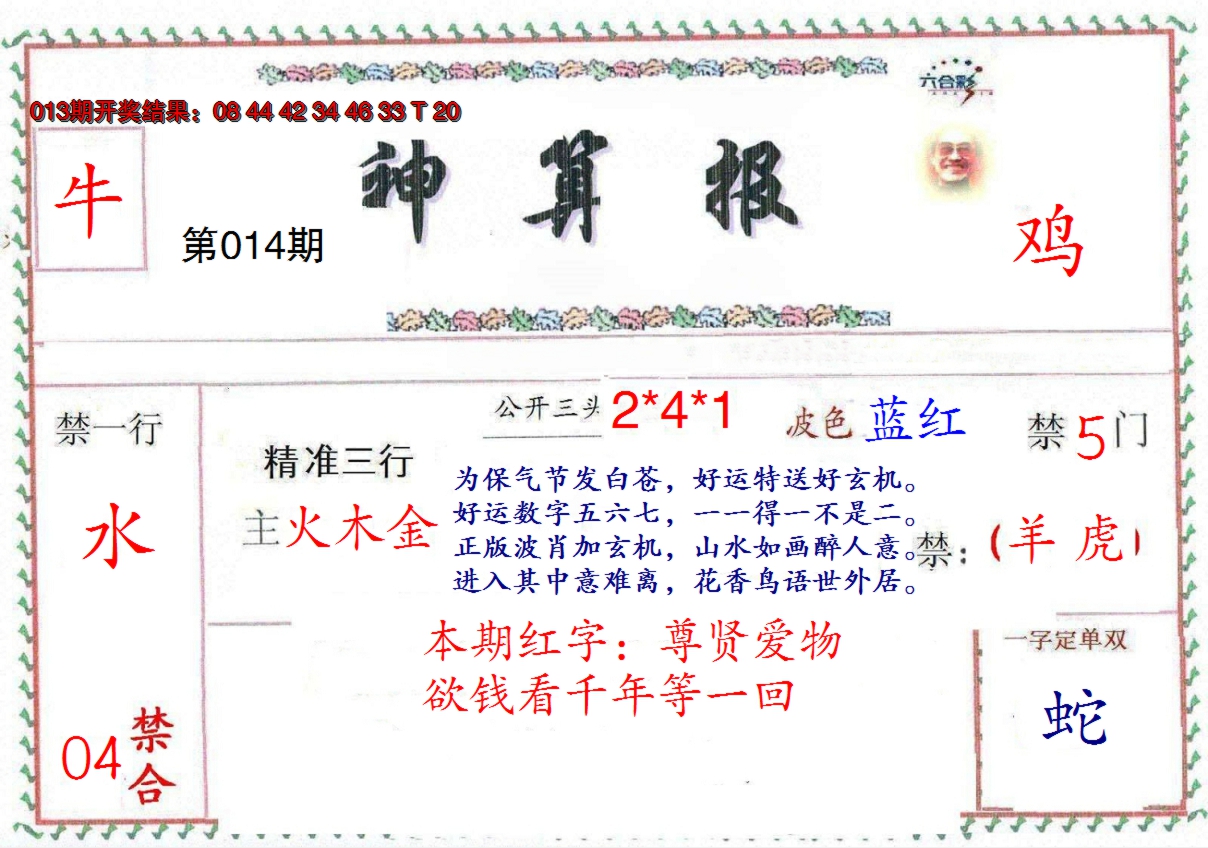 六合彩
013期开奖结果：08 44 42 34 46 33 T 20
牛
第014期
神算报
鸡
禁一行
水
04
禁合
精准三行
主火木金
公开三头 2*4*1
波色 蓝红
禁5门
为保气节发白苍，好运特送好玄机。
好运数字五六七，一一得一不是二。
正版波肖加玄机，山水如画醉人意。
进入其中意难离，花香鸟语世外居。
禁：（羊 虎）
本期红字：尊贤爱物
欲钱看千年等一回
一字定单双
蛇